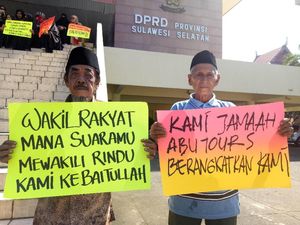 DPRD PROVINSI
SULAWESI SELATAN
WAKIL RAKYAT
MANA SUARAMU
MEWAKILI RINDU
KAMI KE BAITULLAH
KAMI JAMAAH
ABU TOURS
BERANGKATKAN KAMI